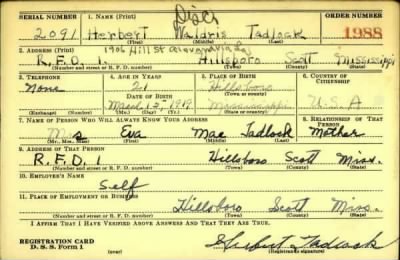 SERIAL NUMBER 1. NAME (Print) ORDER NUMBER
2091 Herbert Waldris Tadlock 1988
(First) (Middle) (Last)
2. ADDRESS (Print)
1906 Hill St
R.F.D. 1 Hillsboro Scott Mississippi
(Number and street or R. F. D. number) (Town) (County) (State)
3. TELEPHONE 4. AGE IN YEARS 5. PLACE OF BIRTH 6. COUNTRY OF CITIZENSHIP
None 21 Hillsboro
DATE OF BIRTH (Town or county)
March 12, 1919 Mississippi U.S.A
(Exchange) (Number) (Mo.) (Day) (Yr.) (State or country)
7. NAME OF PERSON WHO WILL ALWAYS KNOW YOUR ADDRESS 8. RELATIONSHIP OF THAT PERSON
Mrs Eva Mae Tadlock Mother
(Mr., Mrs., Miss) (First) (Middle) (Last)
9. ADDRESS OF THAT PERSON
R.F.D. 1 Hillsboro Scott Miss.
(Number and street or R. F. D. number) (Town) (County) (State)
10. EMPLOYER'S NAME
Self
11. PLACE OF EMPLOYMENT OR BUSINESS
Hillsboro Scott Miss.
(Number and street or R. F. D. number) (Town) (County) (State)
I AFFIRM THAT I HAVE VERIFIED ABOVE ANSWERS AND THAT THEY ARE TRUE.
REGISTRATION CARD
D. S. S. Form 1 (over) Herbert Tadlock
(Registrant's signature)